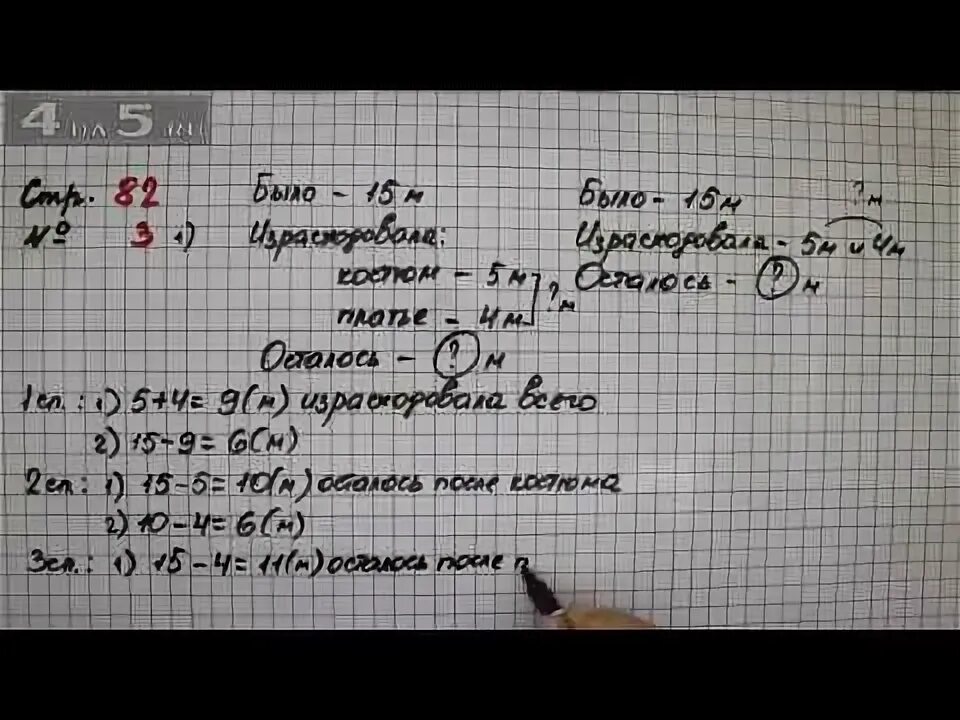 4 5
Стр. 82
№ 3 1)
Было - 15 м
Израсходовала:
костюм - 5 м
платье - 4 м
? м
Осталось - ? м
Было - 15 м
? м
Израсходовала - 5м и 4м
Осталось - ? м
1сп.: 1) 5+4= 9(м) израсходовала всего
2) 15-9= 6(м)
2сп.: 1) 15-5=10(м) осталось после костюма
2) 10-4=6(м)
3сп.: 1) 15-4=11(м) осталось после п